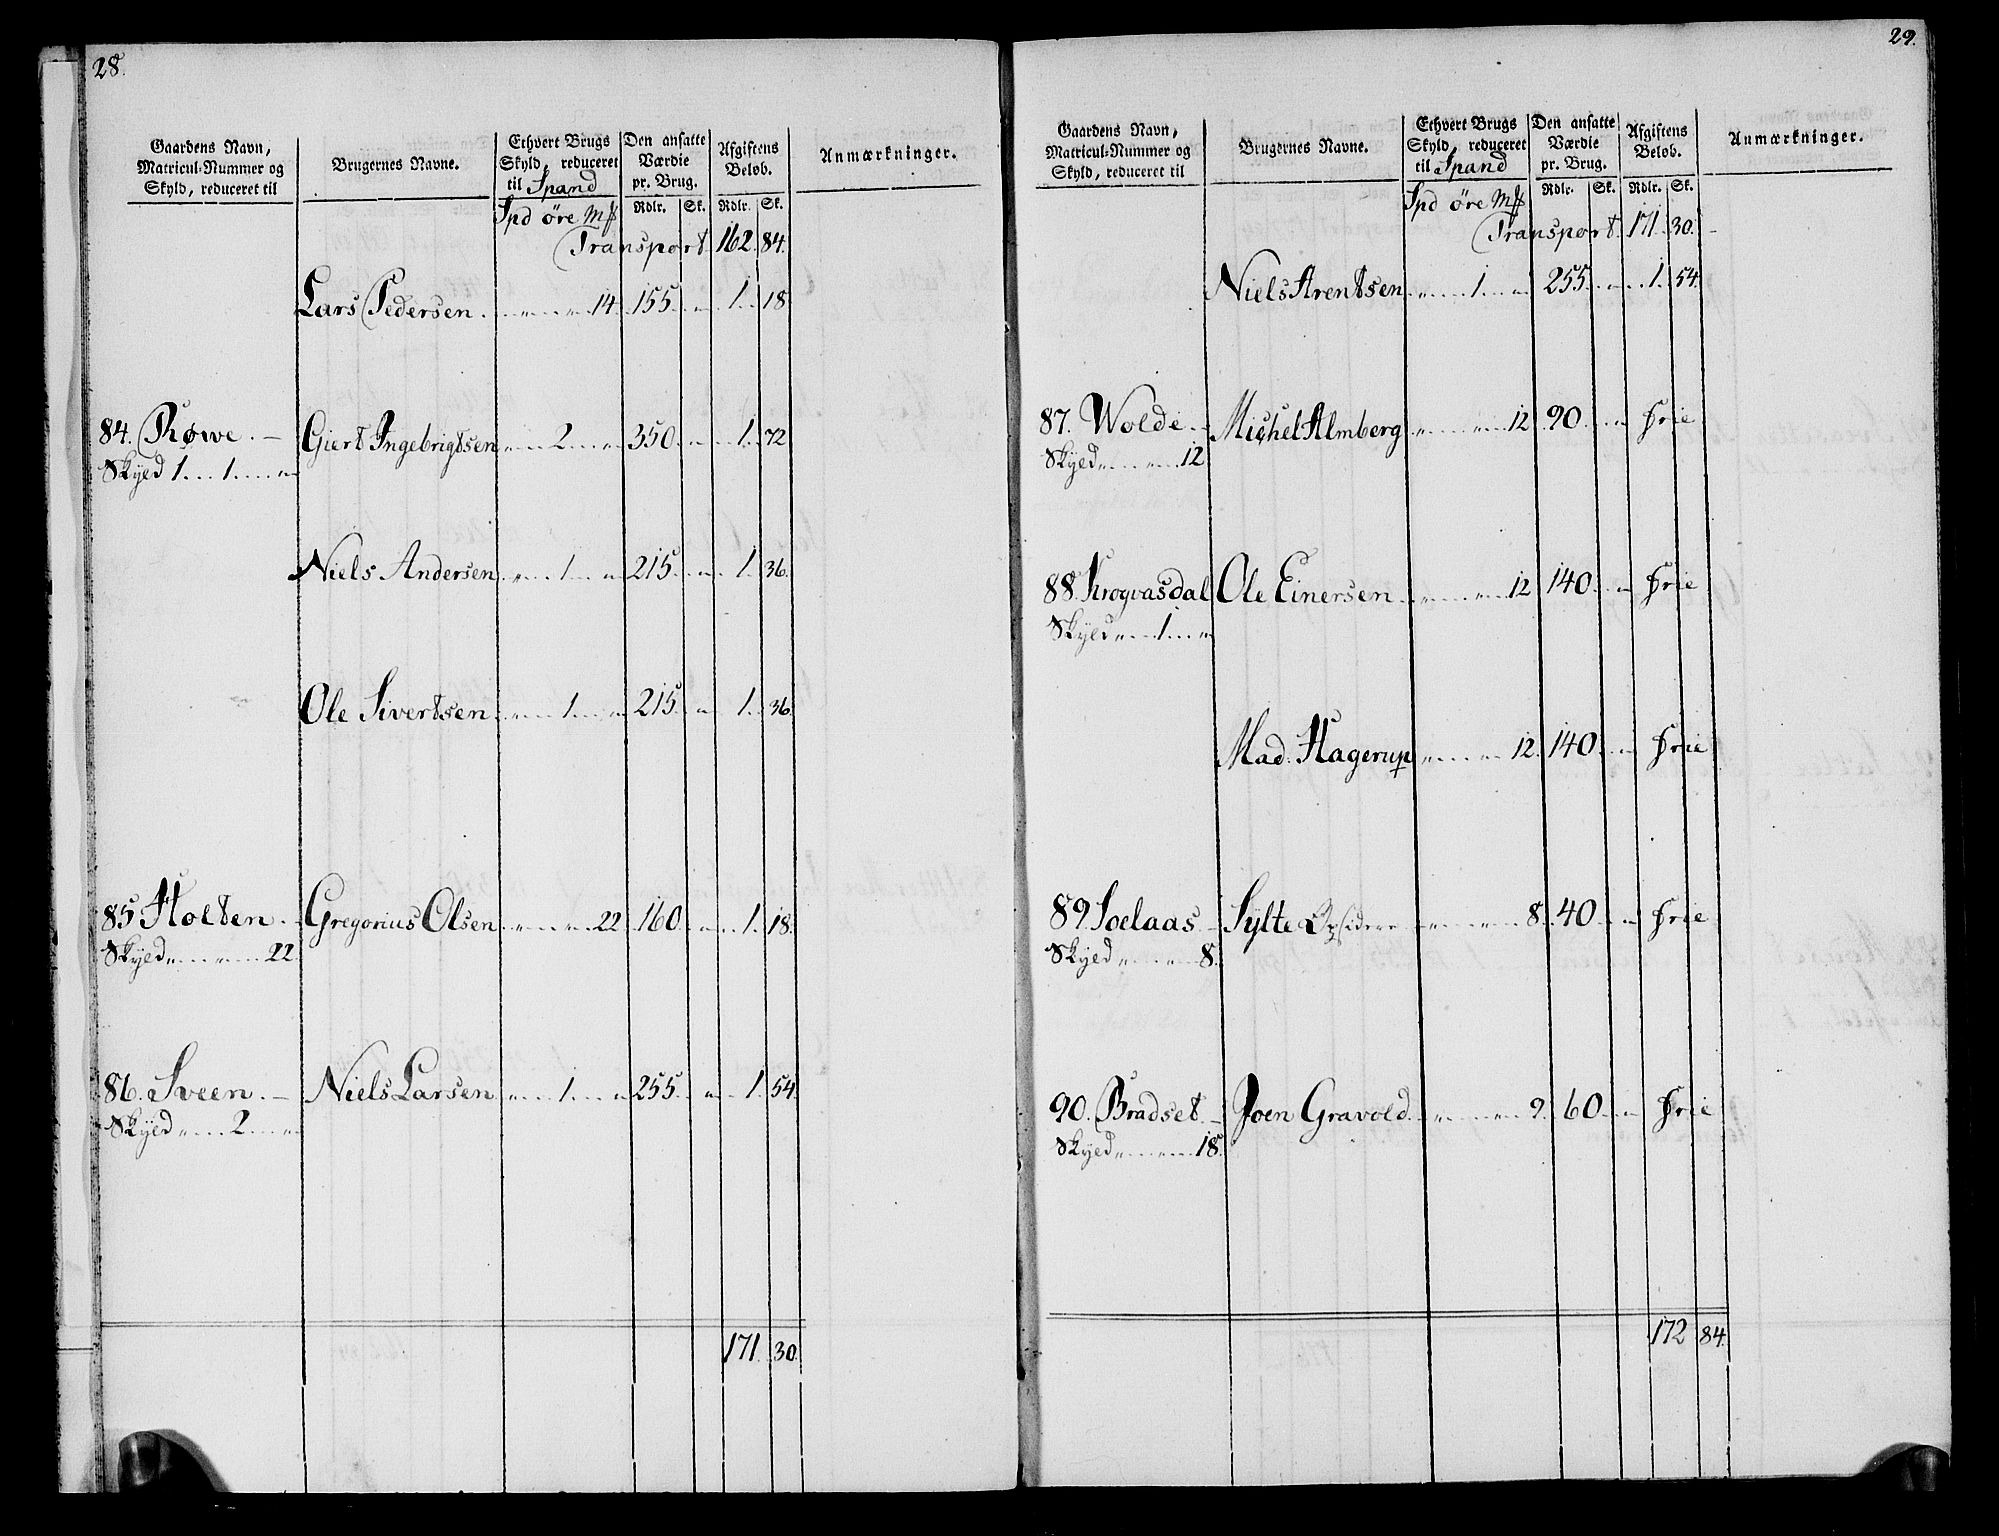 28.
Gaardens Navn, Matricul-Nummer og Skyld, reduceret til | Brugernes Navne. | Ethvert Brugs Skyld, reduceret til Spand | Den ansatte Værdie pr. Brug. | Afgiftens Beløb. | Anmærkninger.
Spd øre Mk | Rdlr. | Sk. | Rdlr. | Sk.
Transport 162. 84.
Lars Pedersen . „ . . „ . . 14. 155. „ 1. 18
84. Røwe. — Giert Ingebrigtsen „ . . 2 . . „ 350. „ 1. 72
Skyed 1 . . . 1 . . . „
Niels Andersen „ . . 1 . . „ 215. „ 1. 36.
Ole Sivertsen „ . . 1 . . „ 215. „ 1. 36.
85 Holten . – Gregorius Olsen „ . . „ . . 22 160 „ 1. 18.
Skyed „ . . „ . . 22.
86. Sveen . – Niels Larsen „ . . 1 . . „ 255. „ 1. 54.
Skyed „ . . 2 . . „
171. 30.
29.
Gaardens Navn, Matricul-Nummer og Skyld, reduceret til | Brugernes Navne. | Ethvert Brugs Skyld, reduceret til Spand | Den ansatte Værdie pr. Brug. | Afgiftens Beløb. | Anmærkninger.
Spd øre Mk | Rdlr. | Sk. | Rdlr. | Sk.
Transport. 171. 30.
Niels Arentsen „ . . 1 . . „ 255. „ 1. 54.
87. Wolde . – Michel Almberg „ . . „ . . 12 90 „ Frie
Skyed „ . . „ . . 12
88. Krogvasdal Ole Einersen „ . . „ . . 12 140. „ Frie
Skyed „ . . 1 . . „
Mad. Hagerup „ . . „ . . 12. 140 „ Frie
89 Soelaas – Sylte Opsidere „ . . „ . . 8. 40 „ Frie
Skyed „ . . „ . . 8.
90. Bradset – Joen Gravold „ . . „ . . 9. 60 „ Frie
Skyed „ . . „ . . 18.
172 84.